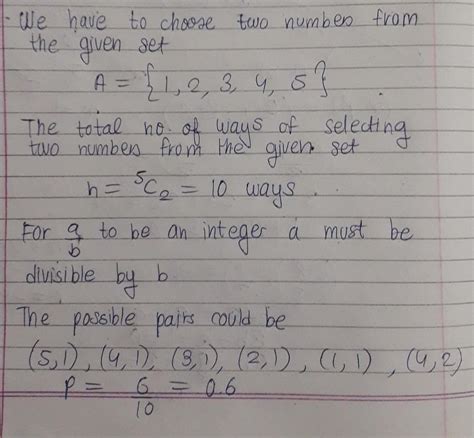 We have to choose two numbers from
the given set
A = {1, 2, 3, 4, 5}
The total no. of ways of selecting
two numbers from the given set
n = ⁵C₂ = 10 ways.
For a/b to be an integer a must be
divisible by b
The possible pairs could be
(5,1), (4,1), (3,1), (2,1), (1,1), (4,2)
P = 6/10 = 0.6